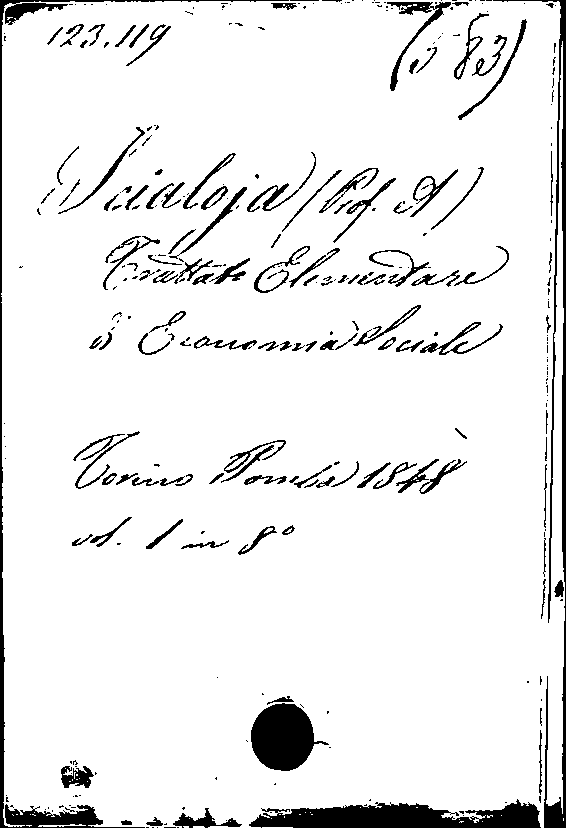 123.119
(5 83)
Scialoja (Prof. A)
Trattato Elementare
d' Economia Sociale
Torino Pomba 1848
vol. 1 in 8º